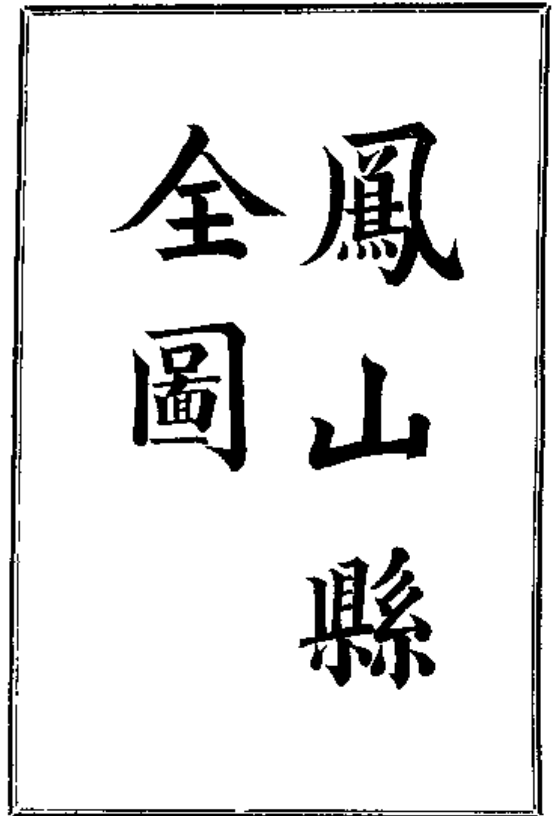 鳳山縣
全圖